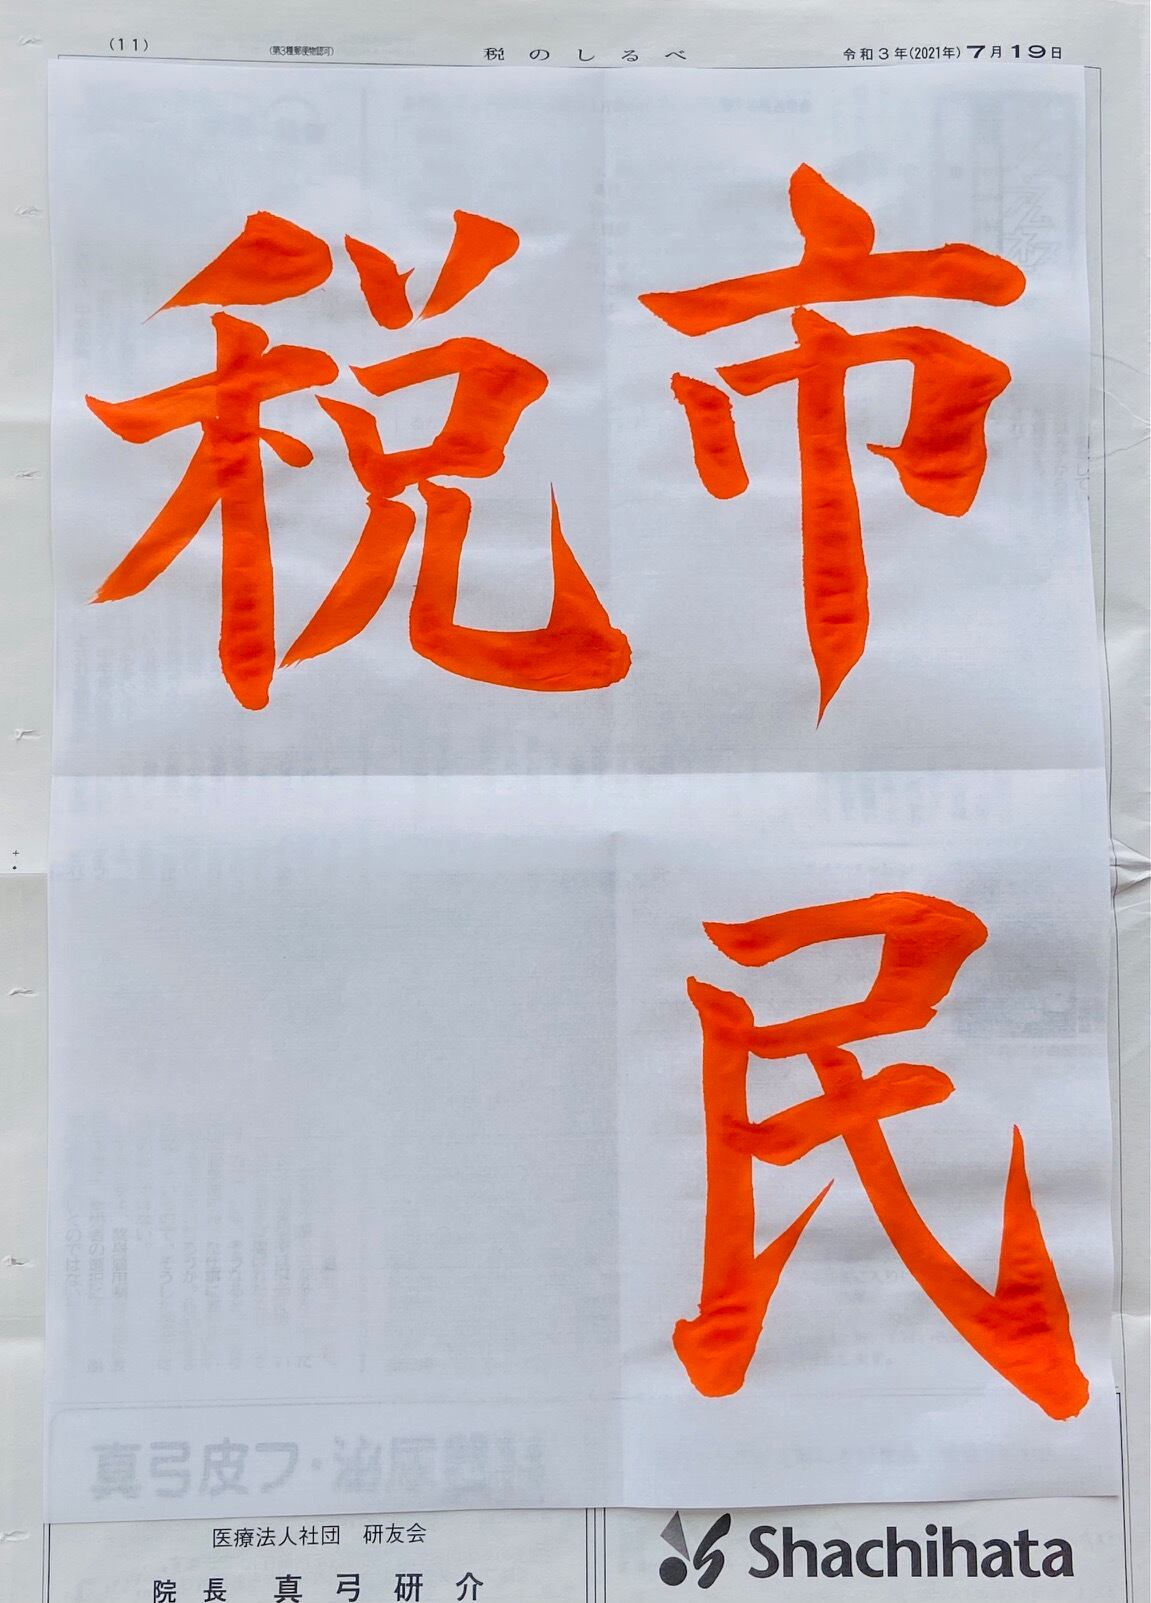 (11)
(第3種郵便物認可)
税のしるべ
令和3年(2021年)7月19日
市民
税
医療法人社団 研友会
院長 真弓研介
Shachihata